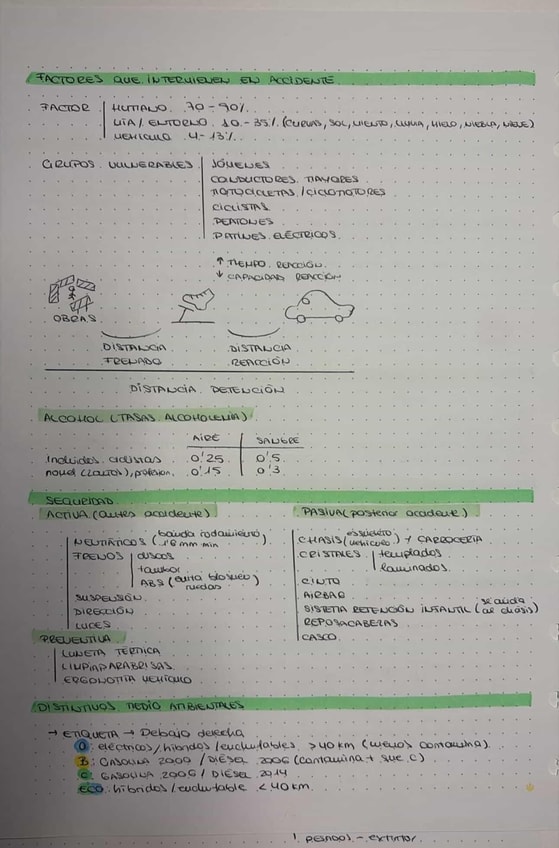 FACTORES QUE INTERVIENEN EN ACCIDENTE
FACTOR
HUMANO 70-90%
VIA/ ENTORNO 10-35% (CURVAS, SOL, VIENTO, LLUVIA, HIELO, NIEBLA, NIEVE)
VEHICULO 4-13%
GRUPOS VULNERABLES
JÓVENES
CONDUCTORES MAYORES
MOTOCICLETAS /CICLOMOTORES
CICLISTAS
PEATONES
PATINES ELÉCTRICOS
↑ TIEMPO REACCIÓN
↓ CAPACIDAD REACCIÓN
OBRAS
DISTANCIA FRENADO
DISTANCIA REACCIÓN
DISTANCIA DETENCIÓN
ALCOHOL (TASAS ALCOHOLEMIA)
AIRE SANGRE
Incluidos ciclistas 0'25 0'5
novel (2años), profesion. 0'15 0'3
SEGURIDAD
ACTIVA (antes accidente)
NEUMÁTICOS (banda rodamiento, 1'6 mm min)
FRENOS
discos
tambor
ABS (evita bloqueo ruedas)
SUSPENSIÓN
DIRECCIÓN
LUCES
PREVENTIVA
LUNETA TÉRMICA
LIMPIAPARABRISAS
ERGONOMÍA VEHÍCULO
PASIVA (posterior accidente)
CHASIS (esqueleto vehículo) Y CARROCERÍA
CRISTALES
templados
laminados
CINTO
AIRBAG
SISTEMA RETENCIÓN INFANTIL (se ancla al chasis)
REPOSACABEZAS
CASCO
DISTINTIVOS MEDIO AMBIENTALES
→ ETIQUETA → Debajo derecha
0: eléctricos/híbridos/enchufables >40 km (menos contamina)
B: GASOLINA 2000 / DIÉSEL 2006 (contamina + que C)
C: GASOLINA 2006 / DIÉSEL 2014
ECO: híbridos /enchufable <40 km
! PESADOS - EXTINTOR